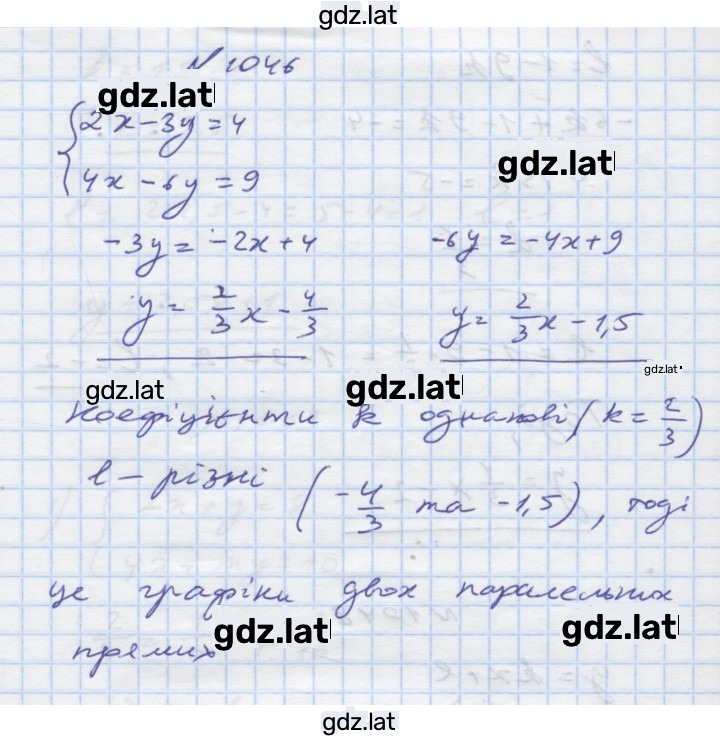 gdz.lat
№ 1046
gdz.lat
{ 2x-3y=4
4x-6y=9
gdz.lat
-3y=-2x+4 -6y=-4x+9
y=2/3x-4/3 y=2/3x-1,5
gdz.lat gdz.lat gdz.lat
Коефіцієнти k однакові (k=2/3)
l - різні (-4/3 та -1,5), тоді
це графіки двох паралельних
gdz.lat gdz.lat
прямих
gdz.lat